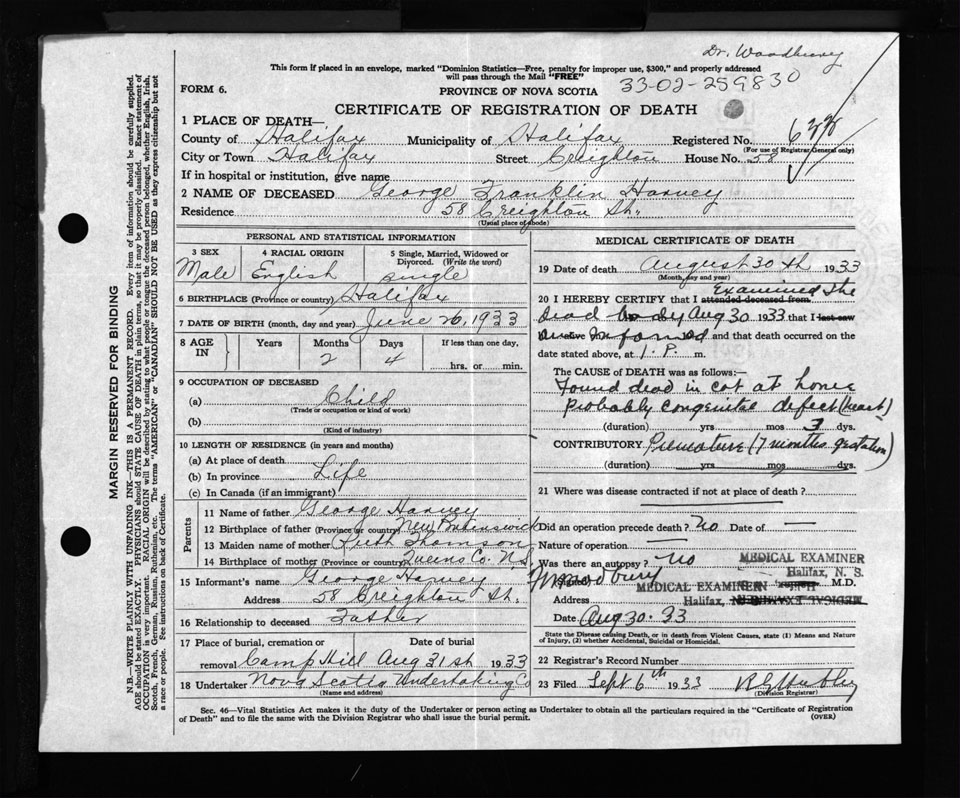 Dr. Woodbury
This form if placed in an envelope, marked "Dominion Statistics—Free, penalty for improper use, $300," and properly addressed
will pass through the Mail "FREE"
FORM 6.
PROVINCE OF NOVA SCOTIA
33-02-259830
CERTIFICATE OF REGISTRATION OF DEATH
1 PLACE OF DEATH—
County of Halifax Municipality of Halifax Registered No.
(For use of Registrar General only)
City or Town Halifax Street Creighton House No. 58
If in hospital or institution, give name
2 NAME OF DECEASED George Franklin Harvey
Residence 58 Creighton St.
(Usual place of abode)
PERSONAL AND STATISTICAL INFORMATION
3 SEX 4 RACIAL ORIGIN 5 Single, Married, Widowed or
Divorced. (Write the word)
Male English single
6 BIRTHPLACE (Province or country) Halifax
7 DATE OF BIRTH (month, day and year) June 26, 1933
8 AGE IN Years Months Days If less than one day,
2 4
hrs. or min.
9 OCCUPATION OF DECEASED
(a) Child
(Trade or occupation or kind of work)
(b)
(Kind of industry)
10 LENGTH OF RESIDENCE (in years and months)
(a) At place of death
(b) In province Life
(c) In Canada (if an immigrant)
Parents
11 Name of father George Harvey
12 Birthplace of father (Province or country) New Brunswick
13 Maiden name of mother Ruth Thomson
14 Birthplace of mother (Province or country) Queens Co. N.S.
15 Informant's name George Harvey
Address 58 Creighton St.
16 Relationship to deceased Father
17 Place of burial, cremation or Date of burial
removal Camp Hill Aug 31st 1933
18 Undertaker Nova Scotia Undertaking Co
(Name and address)
MEDICAL CERTIFICATE OF DEATH
19 Date of death August 30th 1933
(Month, day and year)
Examined the
20 I HEREBY CERTIFY that I attended deceased from
Dead body Aug 30 1933 that I last saw
informed and that death occurred on the
date stated above, at 1. P. m.
The CAUSE of DEATH was as follows:—
Found dead in cot at home
Probably congenital defect (heart)
(duration) yrs mos 3 dys.
CONTRIBUTORY Premature (7 months gestation)
(duration) yrs mos dys.
21 Where was disease contracted if not at place of death?
Did an operation precede death? No Date of —
Nature of operation —
Was there an autopsy? No
MEDICAL EXAMINER
Halifax, N. S.
Woodbury M.D.
MEDICAL EXAMINER
Address Halifax,
Date Aug 30. 33
State the Disease causing Death, or in death from Violent Causes, state (1) Means and Nature
of Injury, (2) whether Accidental, Suicidal or Homicidal.
22 Registrar's Record Number
23 Filed Sept 6th 1933
(Division Registrar)
Sec. 46—Vital Statistics Act makes it the duty of the Undertaker or person acting as Undertaker to obtain all the particulars required in the "Certificate of Registration
of Death" and to file the same with the Division Registrar who shall issue the burial permit.
(OVER)
MARGIN RESERVED FOR BINDING
N.B.—WRITE PLAINLY WITH UNFADING INK—THIS IS A PERMANENT RECORD. Every item of information should be carefully supplied.
AGE should be stated EXACTLY. PHYSICIANS should STATE CAUSE OF DEATH in plain terms, so that it may be properly classified. Exact statement of
OCCUPATION is very important. RACIAL ORIGIN will be described by stating to what people or tongue the deceased person belonged, whether English, Irish,
Scotch, French, German, Russian, Ruthenian, etc. The terms "AMERICAN" or "CANADIAN" SHOULD NOT BE USED as they express citizenship but not
a race or people. See instructions on back of Certificate.